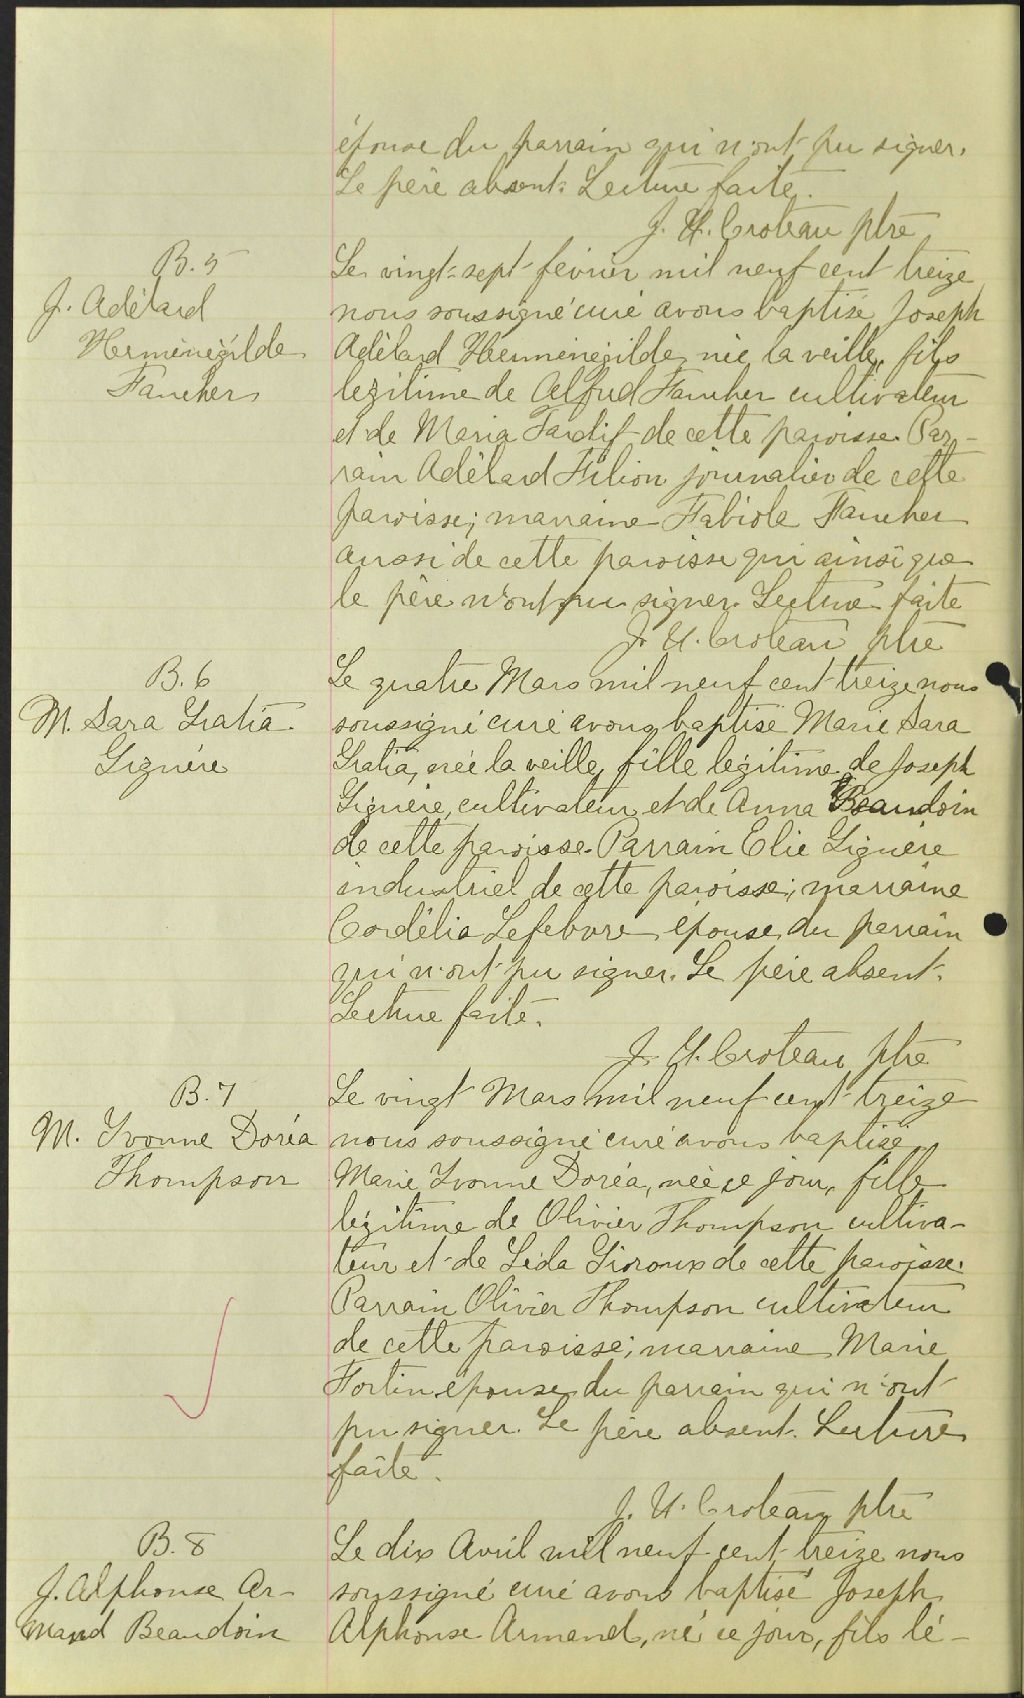 épouse du parrain qui n'ont pu signer.
Le père absent. Lecture faite.
J. U. Croteau ptre
B. 5
J. Adélard
Herménégilde
Faucher
Le vingt-sept février mil neuf cent treize
nous soussigné curé avons baptisé Joseph
Adélard Herménégilde, née la veille, fils
légitime de Alfred Faucher cultivateur
et de Maria Tardif de cette paroisse. Par-
rain Adélard Filion journalier de cette
paroisse; marraine Fabiole Faucher
aussi de cette paroisse qui ainsi que
le père n'ont pu signer. Lecture faite
J. U. Croteau ptre
B. 6
M. Sara Gratia
Giguère
Le quatre Mars mil neuf cent treize nous
soussigné curé avons baptisé Marie Sara
Gratia, née la veille, fille légitime de Joseph
Giguère, cultivateur et de Anna Beaudoin
de cette paroisse. Parrain Elie Giguère
industriel de cette paroisse; marraine
Cordélia Lefebvre épouse du parrain
qui n'ont pu signer. Le père absent.
Lecture faite.
J. U. Croteau ptre
B. 7
M. Yvonne Doréa
Thompson
Le vingt Mars mil neuf cent treize
nous soussigné curé avons baptisé
Marie Yvonne Doréa, née ce jour, fille
légitime de Olivier Thompson cultiva-
teur et de Léda Giroux de cette paroisse.
Parrain Olivier Thompson cultivateur
de cette paroisse; marraine Marie
Fortin épouse du parrain qui n'ont
pu signer. Le père absent. Lecture
faite.
J. U. Croteau ptre
B. 8
J. Alphonse Ar-
mand Beaudoin
Le dix Avril mil neuf cent treize nous
soussigné curé avons baptisé Joseph
Alphonse Armand, né ce jour, fils lé-